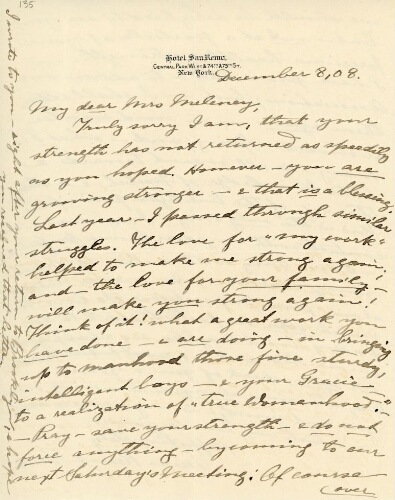 135
Hotel San Remo,
Central Park West & 74th & 75th St.
New York.
December 8, 08.
My dear Mrs Meloney,
Truly sorry I am, that your
strength has not returned as speedily
as you hoped. However – you are
growing stronger – & that is a blessing.
Last year – I passed through similar
struggles. The love for "my work"
helped to make me strong again,
and – the love for your family –
will make you strong again!
Think of it! what a great work you
have done – & are doing – in bringing
up to manhood those fine sturdy,
intelligent boys – & your Gracie –
to a realization of "true Womanhood."
– Pray – save your strength – & do not
force anything – by coming to our
next Saturday's Meeting! Of course –
(over
I wrote to you – right after your return to Brooklyn – & hope
you received that letter